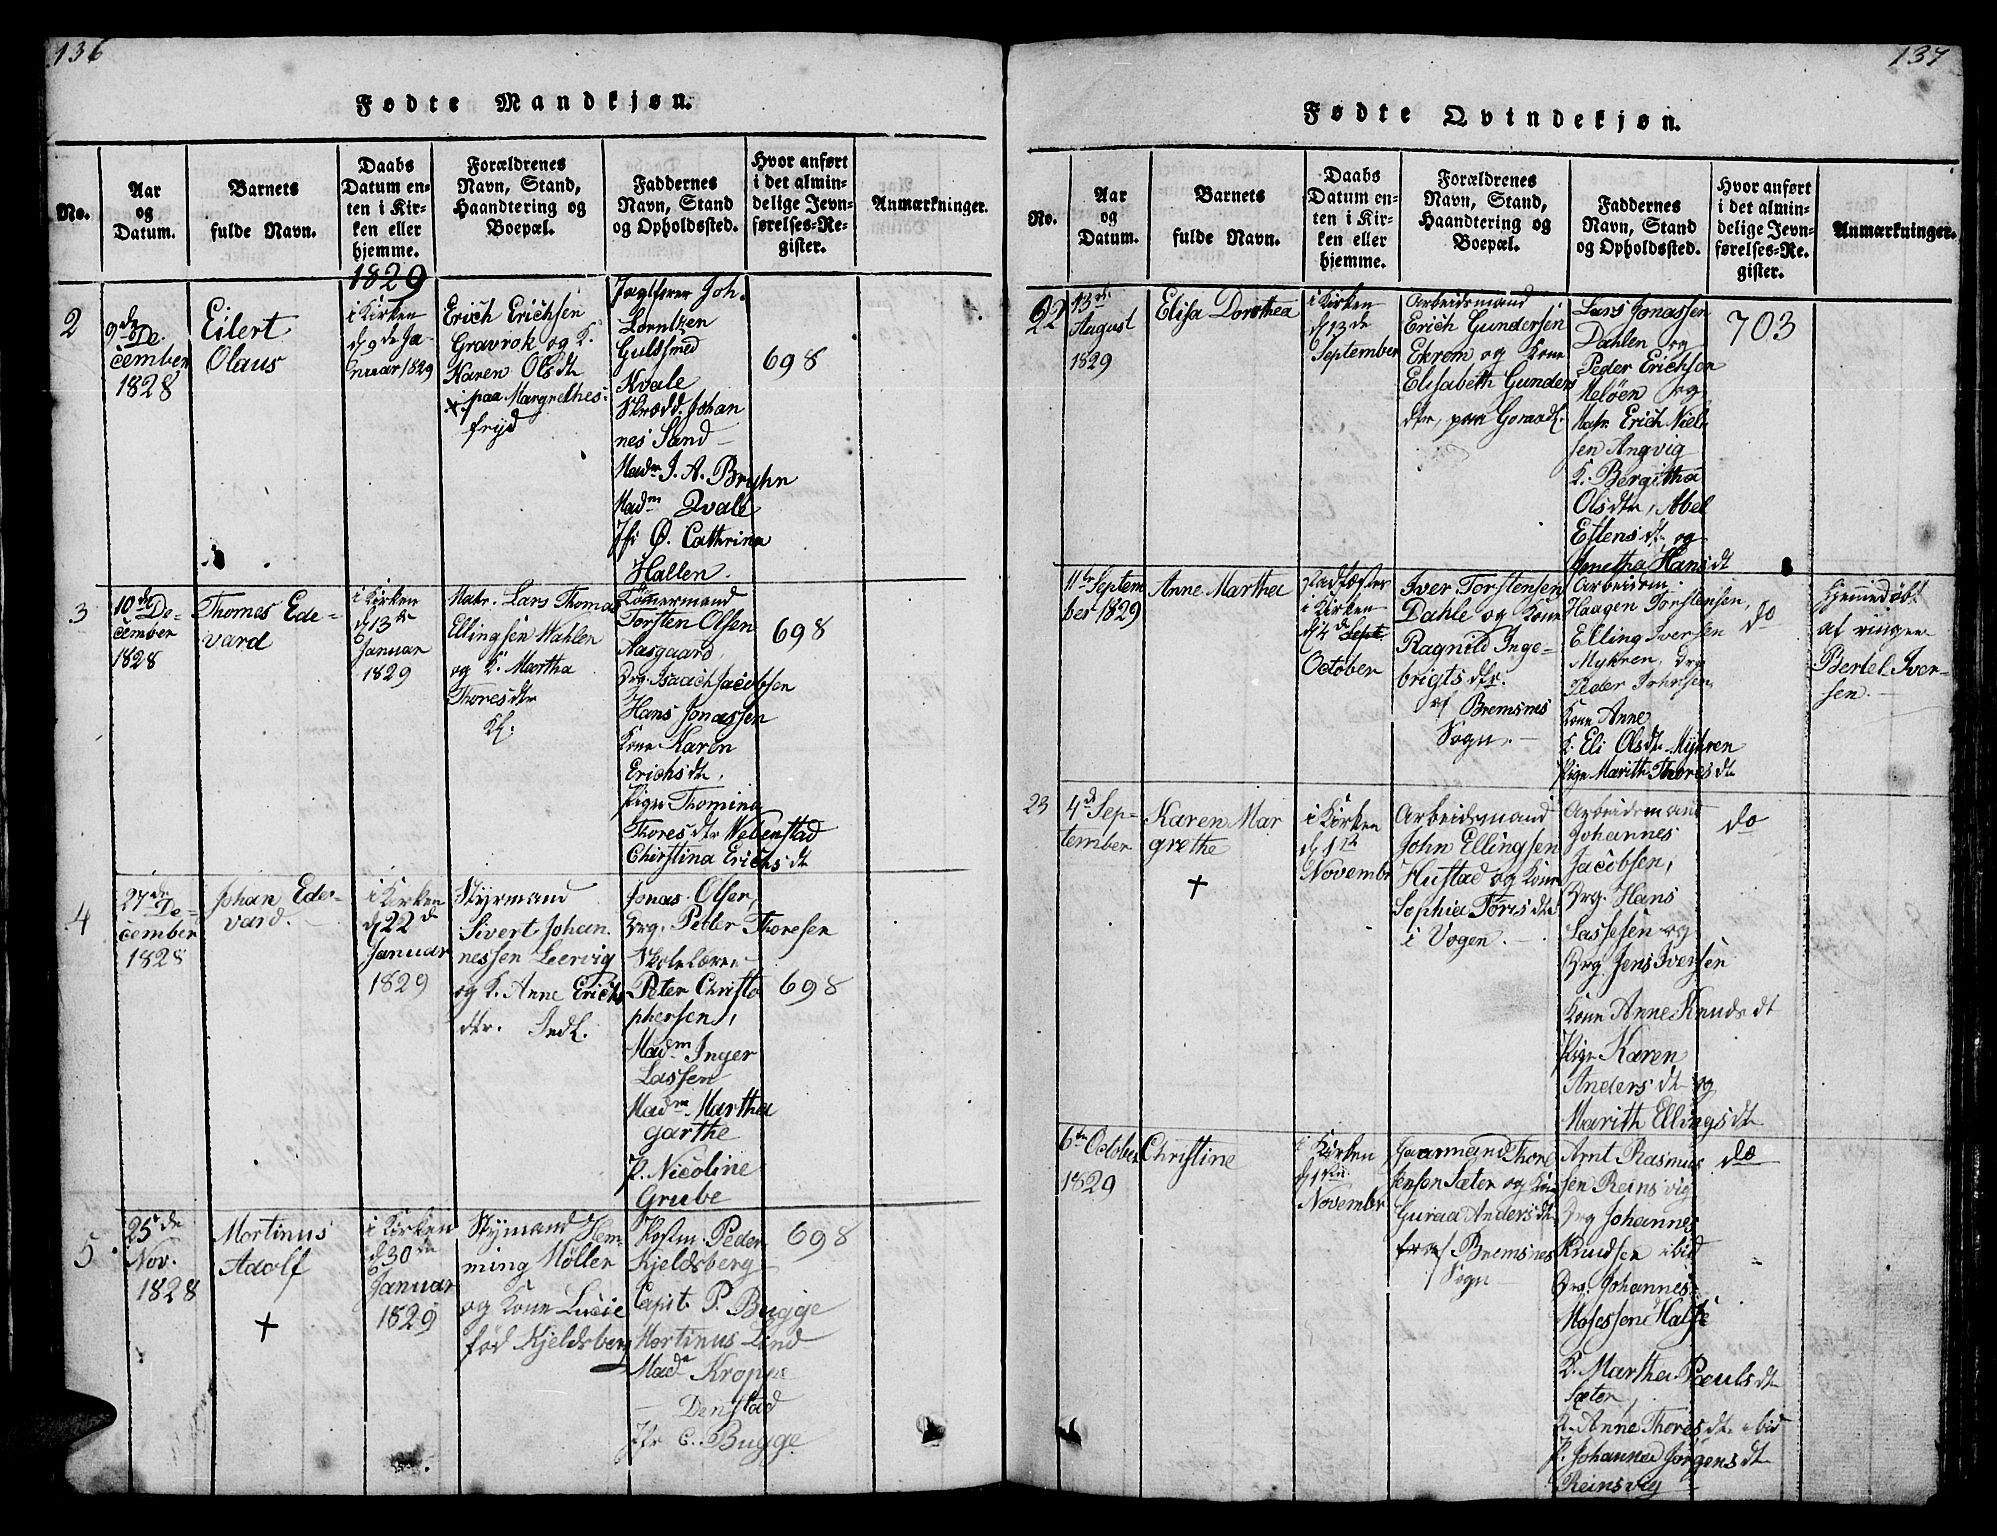 136
Fødte Mandkjøn.
No.
Aar
og
Datum.
Barnets
fulde Navn.
Daabs
Datum en-
ten i Kir-
ken eller
hjemme.
Forældrenes
Navn, Stand,
Haandtering og
Boepæl.
Faddernes
Navn, Stand
og Opholdssted.
Hvor anført
i det almin-
delige Jevn-
førelses-Re-
gister.
Anmærkninger.
1829
2
9de De-
cember
1828
Eilert
Olaus
i Kirken
d 9de Ja-
nuar 1829
Erich Erichsen
Gravrok og K.
Karen Olsdtr
paa Margrethes-
fryd
Joh.
Lorntzen
Guldsmed
Kvale
Skrædd. Johan
nes Sand
Madm J. A. Bruhn
Madm Qvale
Jfr Ø. Cathrina
Hallen.
698
3
10de De-
cember
1828
Thomes Ede-
vard
i Kirken
d 13de
Januar
1829
Matr. Lars Thomas
Ellingsen Wahlen
og K. Martha
Thoresdtr
Tømmermand
Torsten Olsen
Aasgaard,
Drg. Isaach Jacobsen
Hans Jonassen
Kone Karen
Erichsdtr,
Pige Thomina
Thoresdtr Nebenstad
Chirstina Erichsdt
698
4
27de De-
cember
1828
Johan Ede-
vard.
i Kirken
d 22d
Januar
1829
Styrmand
Sivert Johan
nessen Leervig
og K. Anne Erichs
dtr. Indl.
Jonas Olsen,
Drg. Peter Thoresen
Skolelærer
Peter Christo
phersen,
Madm Inger
Lassen
Madm Martha
Garthe
P. Nicoline
Grube
698
5.
25de
Nov.
1828
Mortinus
Adolf
+
i Kirken
d 30te
Januar
1829
Stymand Hem-
ming Møller
og Kone Lucie
fød Kjeldsberg
Peder
Kjeldsberg
Capit. P. Bugge
Mortinus Lind
Mad Kropp
— Denstad
Jfr C. Bugge
698
137
Fødte Qvindekjøn.
No.
Aar
og
Datum.
Barnets
fulde Navn.
Daabs
Datum en-
ten i Kir-
ken eller
hjemme.
Forældrenes
Navn, Stand,
Haandtering og
Boepæl.
Faddernes
Navn, Stand
og Opholdssted.
Hvor anført
i det almin-
delige Jevn-
førelses-Re-
gister.
Anmærkninger.
22
13de
August
1829
Elisa Dorothea
i Kirken
d 13de
September
Arbeidsmand
Erich Gundersen
Ekrem og Kone
Elisabeth Gunders
dtr, paa
Lars Jonassen
Dahlen og
Peder Erichsen
Meløen og
Matr. Erich Niel-
sen Angvig
K. Bergitha
Olsdtr, Abel
Estensdtr og
Anetha Hansdt
703
11te Septem
ber 1829
Anne Martha
Stadfæstet
i Kirken
d 4de Sept
October
Iver Torstensen
Dahle og Kone
Ragnild Inge-
brigtsdtr.
af Bremsnes
Sogn.
Arbeidsm.
Haagen Torstensen,
Elling Iversen
Myhren, Drg
Peder Johnsen
Kone Anne
K. Eli Olsdtr Myhren
Pige Marith Thoresdt
do
Hjemmedøbt
af
Bertel Iver-
sen.
23
4d Sep-
tember
Karen Mar
grethe
+
i Kirken
d 1te
Novembr
Arbeidsmand
John Ellingsen
Hustad og Kone
Sophia Toresdtr
i Vogen.
Arbeidsmand
Johannes
Jacobsen,
Drg. Hans
Lassesen og
Drg Jens Iversen
Kone Anne Knudsdt
Pige Karen
Andersdt og
Marith Ellingsdt
do
6te October
1829
Christine
i Kirken
d 1te
November
Gaarmand Thore
Jensen Sæter og Kone
Guraa Andersdt
af Bremsnes
Sogn
Arnt Rasmus
sen Reinsvig
Drg Johannes
Knudsen ibid
Drg. Johannes
Mosessen Halse
K. Martha Paulsdt
Sæter
P. Anne Thoresdt ibid
P. Johanna Jørgensdt
Reinsvig
do